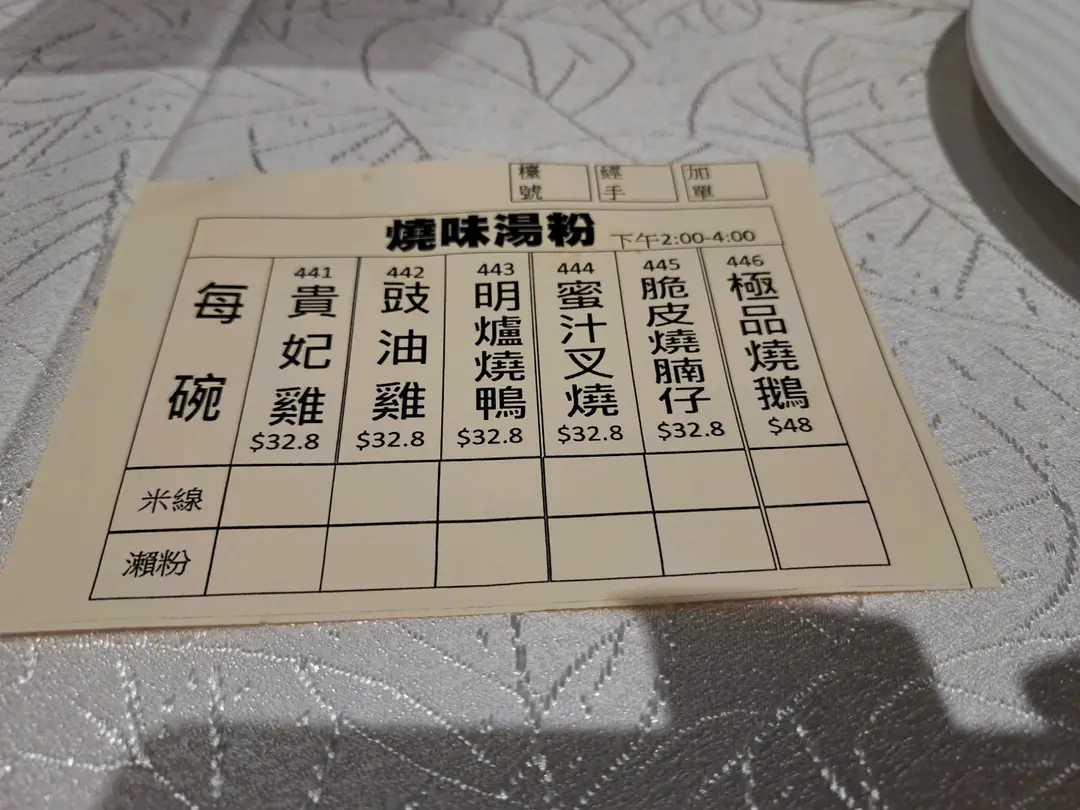 檯號 經手 加單
燒味湯粉 下午2:00-4:00
每碗
441 貴妃雞 $32.8
442 豉油雞 $32.8
443 明爐燒鴨 $32.8
444 蜜汁叉燒 $32.8
445 脆皮燒腩仔 $32.8
446 極品燒鵝 $48
米線
瀨粉